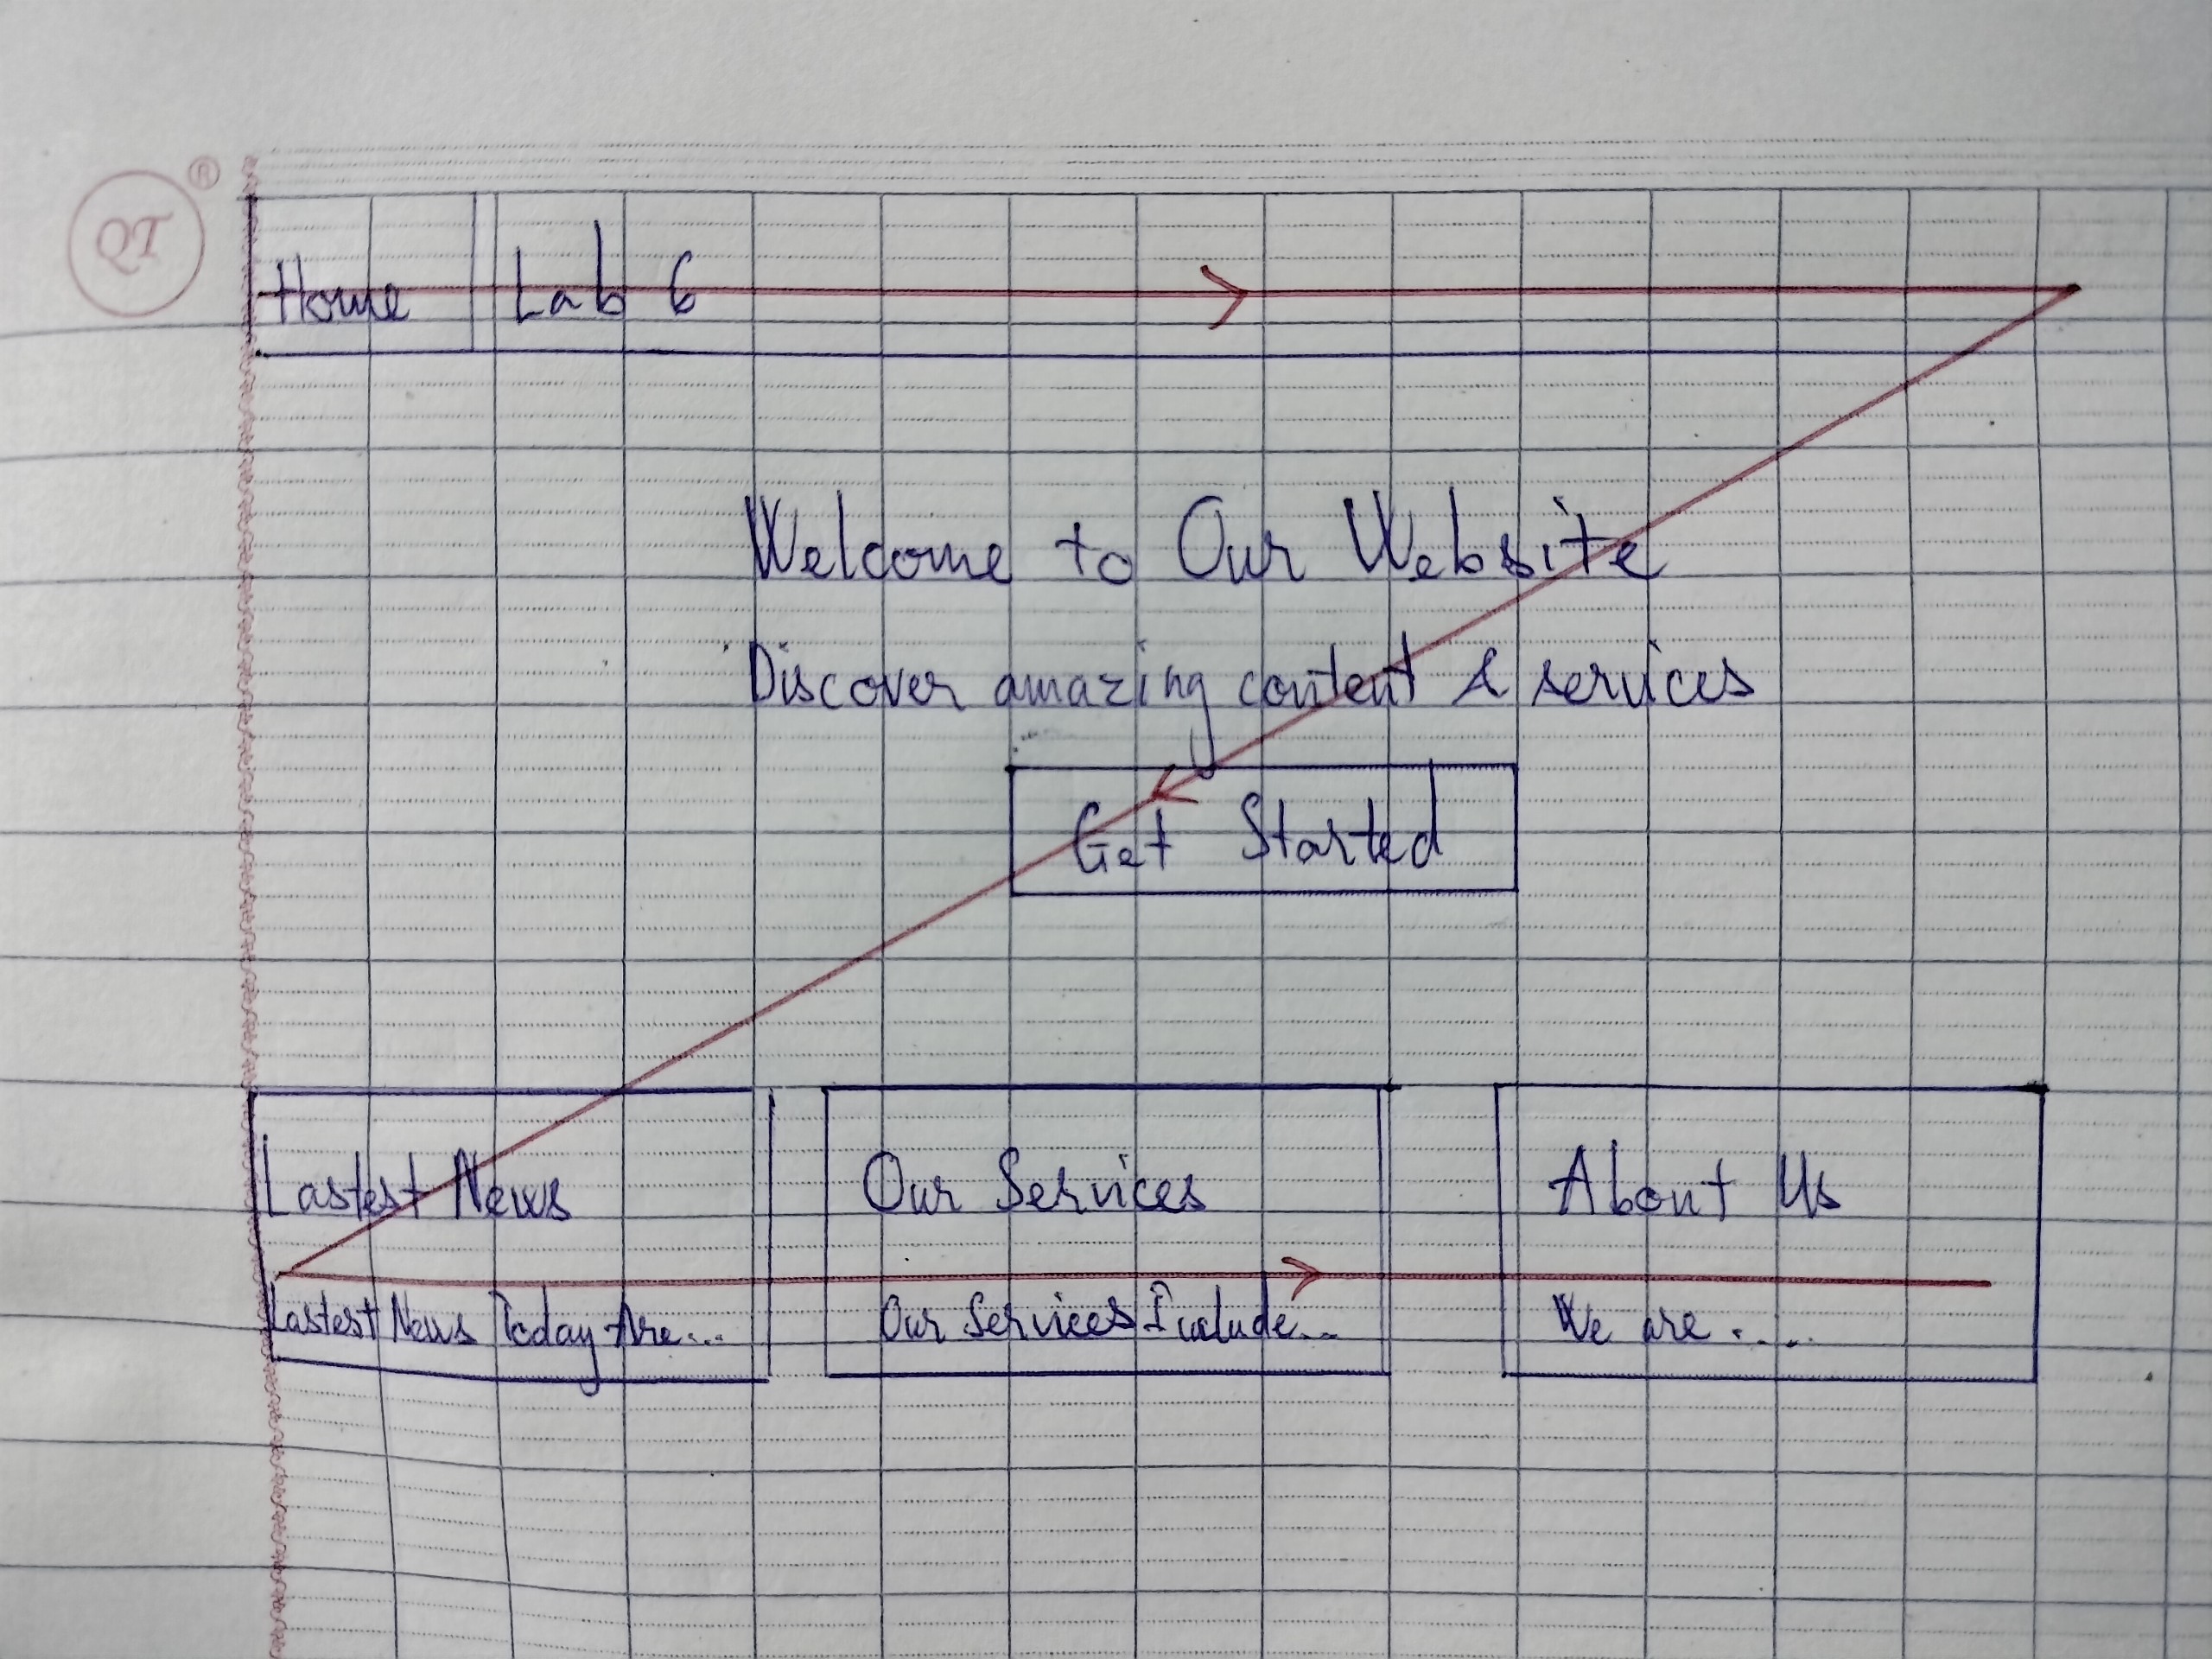 QT ®
Home Lab 6
Welcome to Our Website
Discover amazing content & services
Get Started
Lastest News
Lastest News Today Are...
Our Services
Our Services Include...
About Us
We are .....